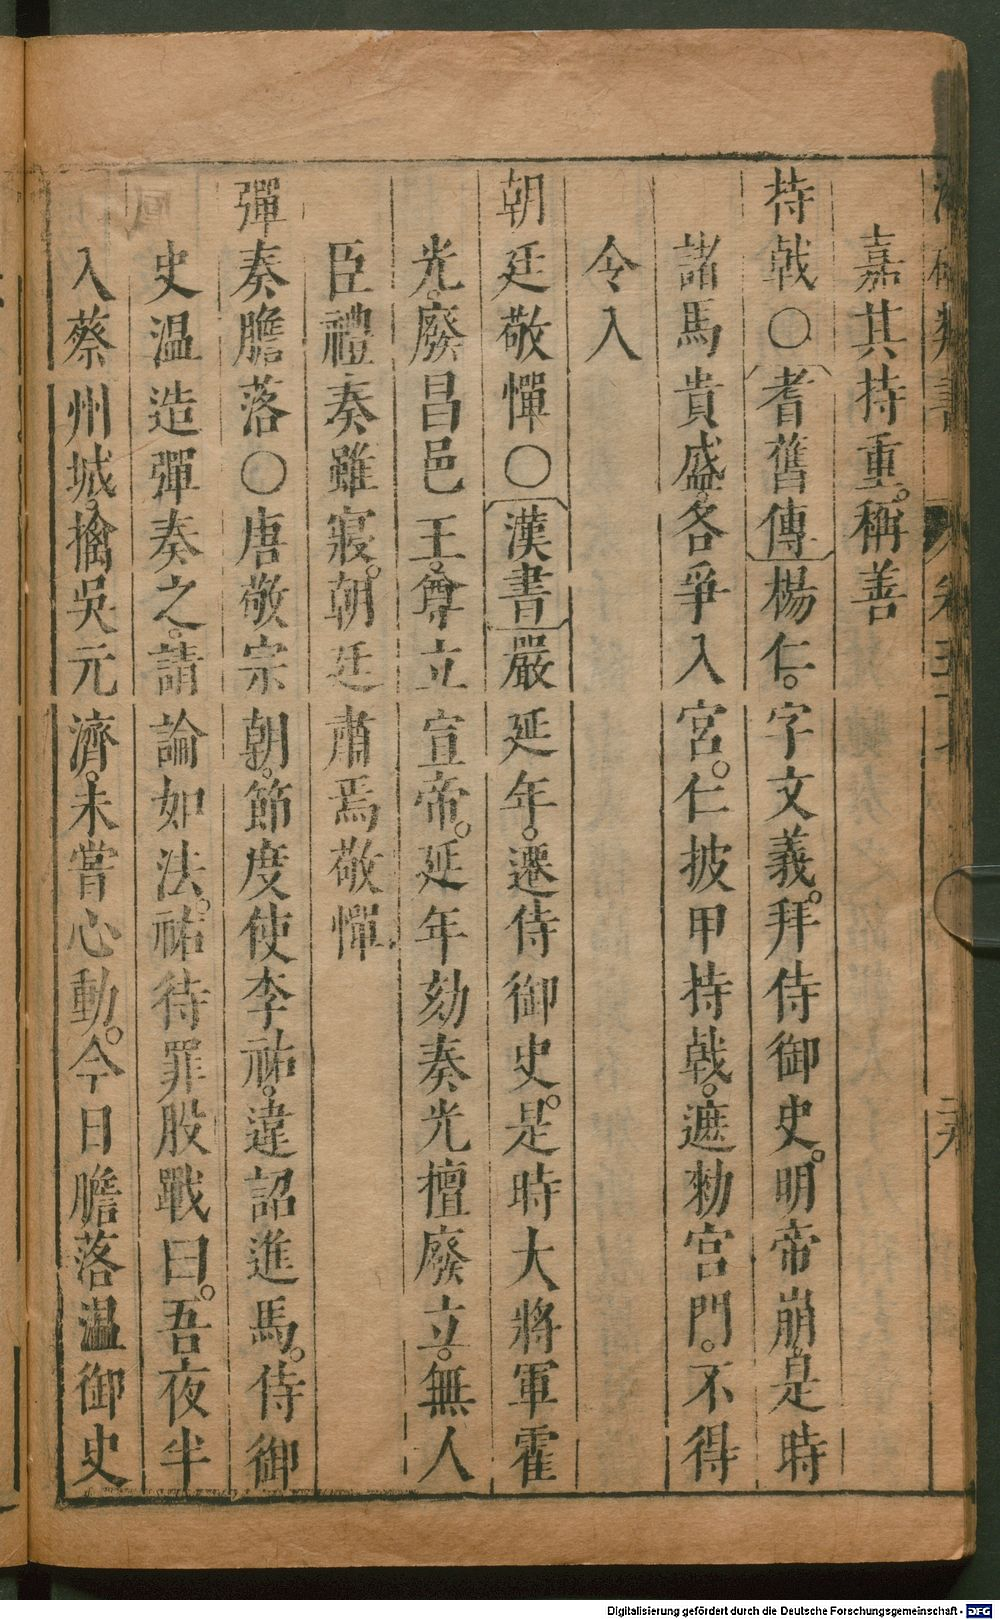 嘉其持重。稱善
持戟○耆舊傳楊仁。字文義。拜侍御史。明帝崩。是時
諸馬貴盛。各爭入宮。仁披甲持戟。遮勑宮門。不得
令入
朝廷敬憚○漢書嚴延年。遷侍御史。是時大將軍霍
光。廢昌邑王。尊立宣帝。延年劾奏光擅廢立。無人
臣禮奏雖寢。朝廷肅焉敬憚
彈奏膽落○唐敬宗朝。節度使李祐。違詔進馬。侍御
史温造彈奏之。請論如法。祐待罪股戰曰。吾夜半
入蔡州城。擒吳元濟。未嘗心動。今日膽落温御史
Digitalisierung gefördert durch die Deutsche Forschungsgemeinschaft - DFG